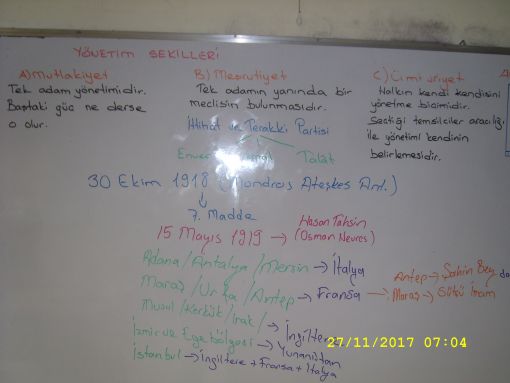 YÖNETİM ŞEKİLLERİ
A) Mutlakiyet
Tek adam yönetimidir.
Baştaki güç ne derse
o olur.
B) Meşrutiyet
Tek adamın yanında bir
meclisin bulunmasıdır.
C) Cumhuriyet
Halkın kendi kendisini
yönetme biçimidir.
Seçtiği temsilciler aracılığı
ile yönetimi kendinin
belirlemesidir.
İttihat ve Terakki Partisi
Enver Talat
30 Ekim 1918 (Mondros Ateşkes Ant.)
↓
7. Madde
15 Mayıs 1919 → Hasan Tahsin
(Osman Nevres)
Adana / Antalya / Mersin → İtalya
Maraş / Urfa / Antep → Fransa → Maraş → Sütçü İmam
Antep → Şahin Bey
Musul / Kerkük / Irak / → İngiltere
İzmir ve Ege bölgesi → Yunanistan
İstanbul → İngiltere + Fransa + İtalya
27/11/2017 07:04